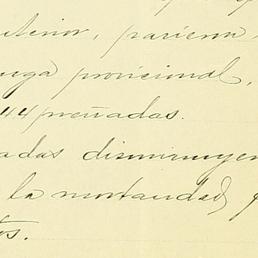 terior, pariera
uega provicional,
44 preñadas.
adas disminuyen
la mortandad, y
tos.